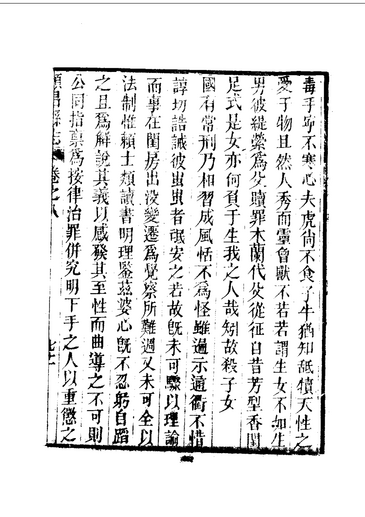 毒手寧不寒心夫虎尙不食子牛猶知舐犢天性之
愛于物且然人秀而靈曾獸不若若謂生女不如生
男彼緹縈爲父贖罪木蘭代父從征自昔芳型香閨
足式是女亦何負于生我之人哉矧故殺子女
國有常刑乃相習成風恬不爲怪雖過示通衢不惜
諄切誥誡彼蚩蚩者氓安之若故旣未可驟以理諭
而事在閨房出没變遷爲覺察所難週又未可全以
法制惟賴士類讀書明理鑒茲婆心旣不忍躬自蹈
之且爲解說其義以感發其至性而曲導之不可則
公同指稟爲按律治罪併究明下手之人以重懲之
順昌縣志
卷之八
七十